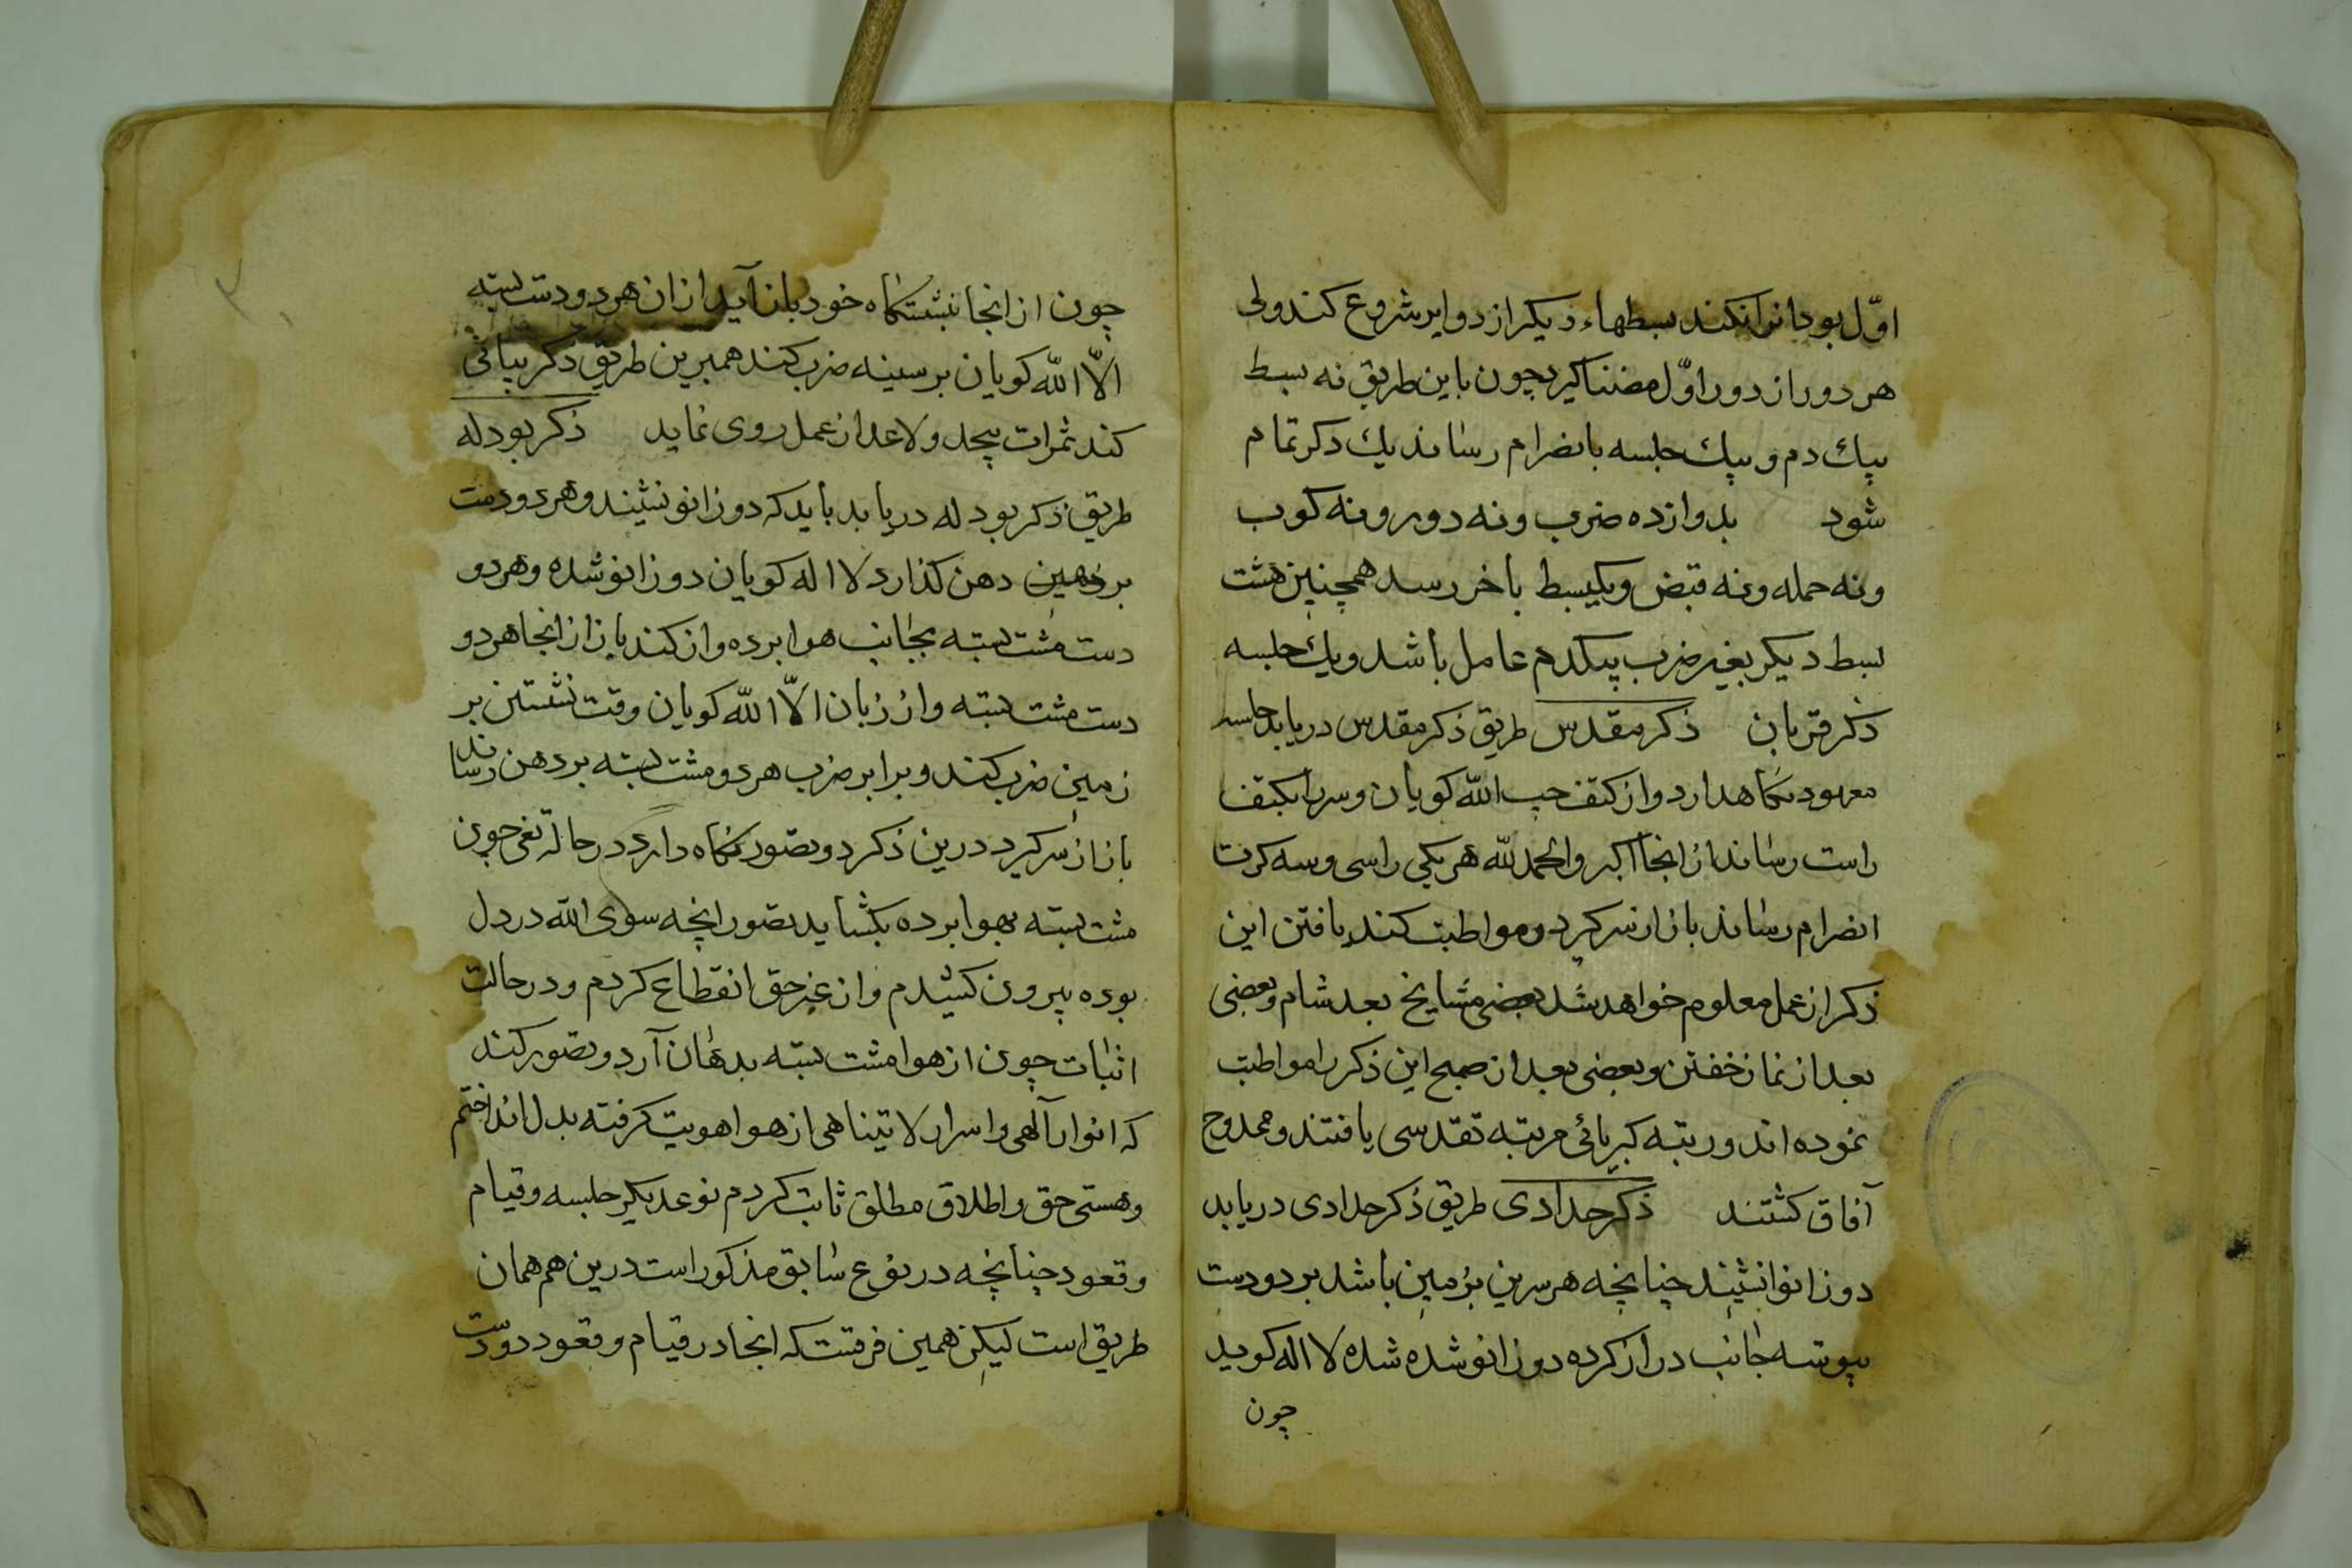 اوّل بود انرا نکند بسطهاء دیکر از دوایر شروع کند ولی
هر دور از دور اوّل مضنا کیرد چون باین طریق نه بسط
بیك دم و بیك جلسه بانضرام رساند یك ذکر تمام
شود بدوازده ضرب و نه دور و نه کوب
و نه حمله و نه قبض و یکبسط باخر رسد همچنین هشت
بسط دیکر بغیر ضرب بیکدم عامل باشد و یك جلسه
ذکر قربان ذکر مقدس طریق ذکر مقدس دریابد جلسه
معهود نکاهدارد و از کتف چپ الله کویان و سر را بکتف
راست رساند از انجا اکبر والحمد لله هر یکی راسی و سه کرت
انضرام رساند باز از سر کیرد و مواطبت کند یافتن این
ذکر از عمل معلوم خواهد شد بعضی مشایخ بعد شام و بعضی
بعد از نماز خفتن و بعضی بعد از صبح این ذکر را مواطبت
نموده اند و رتبه کبریائی مرتبه تقدسی یافتند و ممدوح
آفاق کشتند ذکر حدادی طریق ذکر حدادی دریابد
دوزانو انشیند چنانچه هر سرین بزمین باشد بر دو دست
پیوسته جانب دراز کرده دوزانو شده شده لا اله کوید
چون
چون از انجا بنشستکاه خود باز آید از ان هر دو دست بسته
الّا الله کویان بر سینه ضرب کند همبرین طریق ذکر بیانی
کند ثمرات بیحد و لاعد از عمل روی نماید ذکر بودله
طریق ذکر بودله دریابد باید که دوزانو نشیند و هر دو دست
بر دهن کذارد لا اله کویان دوزانو شده و هر دو
دست مشت بسته بجانب هوا برده واز کند باز از انجا هر دو
دست مشت بسته واز زبان الّا الله کویان وقت نشستن بر
زمین ضرب کند و برابر ضرب هر دو مشت بسته بر دهن رساند
باز از سر کیرد درین ذکر دو تصور نکاه دارد در حالة نفی چون
مشت بسته بهوا برده بکشاید تصور انچه سوی الله در دل
بوده بیرون کشیدم و از غیر حق انقطاع کردم و در حالت
اثبات چون از هوا مشت بسته بدهان آرد و تصور کند
که انوار آلهی و اسرار لا تیناهی از هوا هویت کرفته بدل انداختم
و هستی حق و اطلاق مطلق ثابت کردم نوعدیکر جلسه و قیام
و قعود چنانچه در نوع سابق مذکور است درین هم همان
طریق است لیکن همین فرقست که انجا در قیام و قعود دو دست